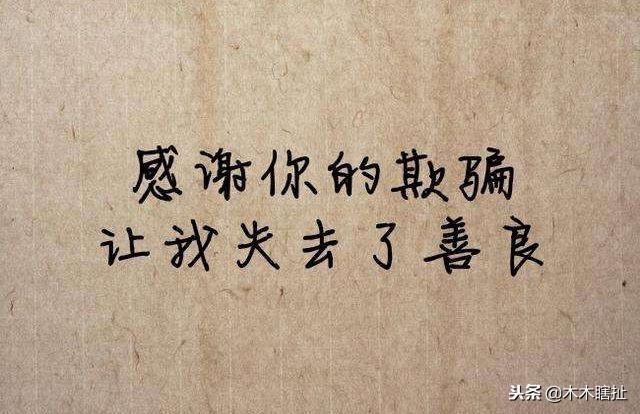 感谢你的欺骗
让我失去了善良
头条 @木木瞎扯